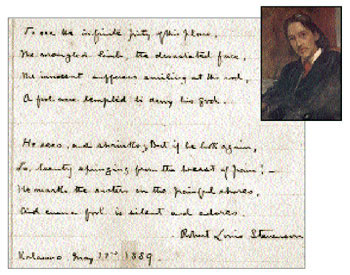 To see the infinite pity of this place,
The mangled limb, the devastated face,
The innocent sufferers smiling at the rod,
A fool were tempted to deny his God.
He sees, and shrinks; But if he look again,
Lo, beauty springing from the breast of pain! —
He marks the sisters on the painful shores,
And even a fool is silent and adores.
Robert Louis Stevenson
Kalawao May 22nd 1889.